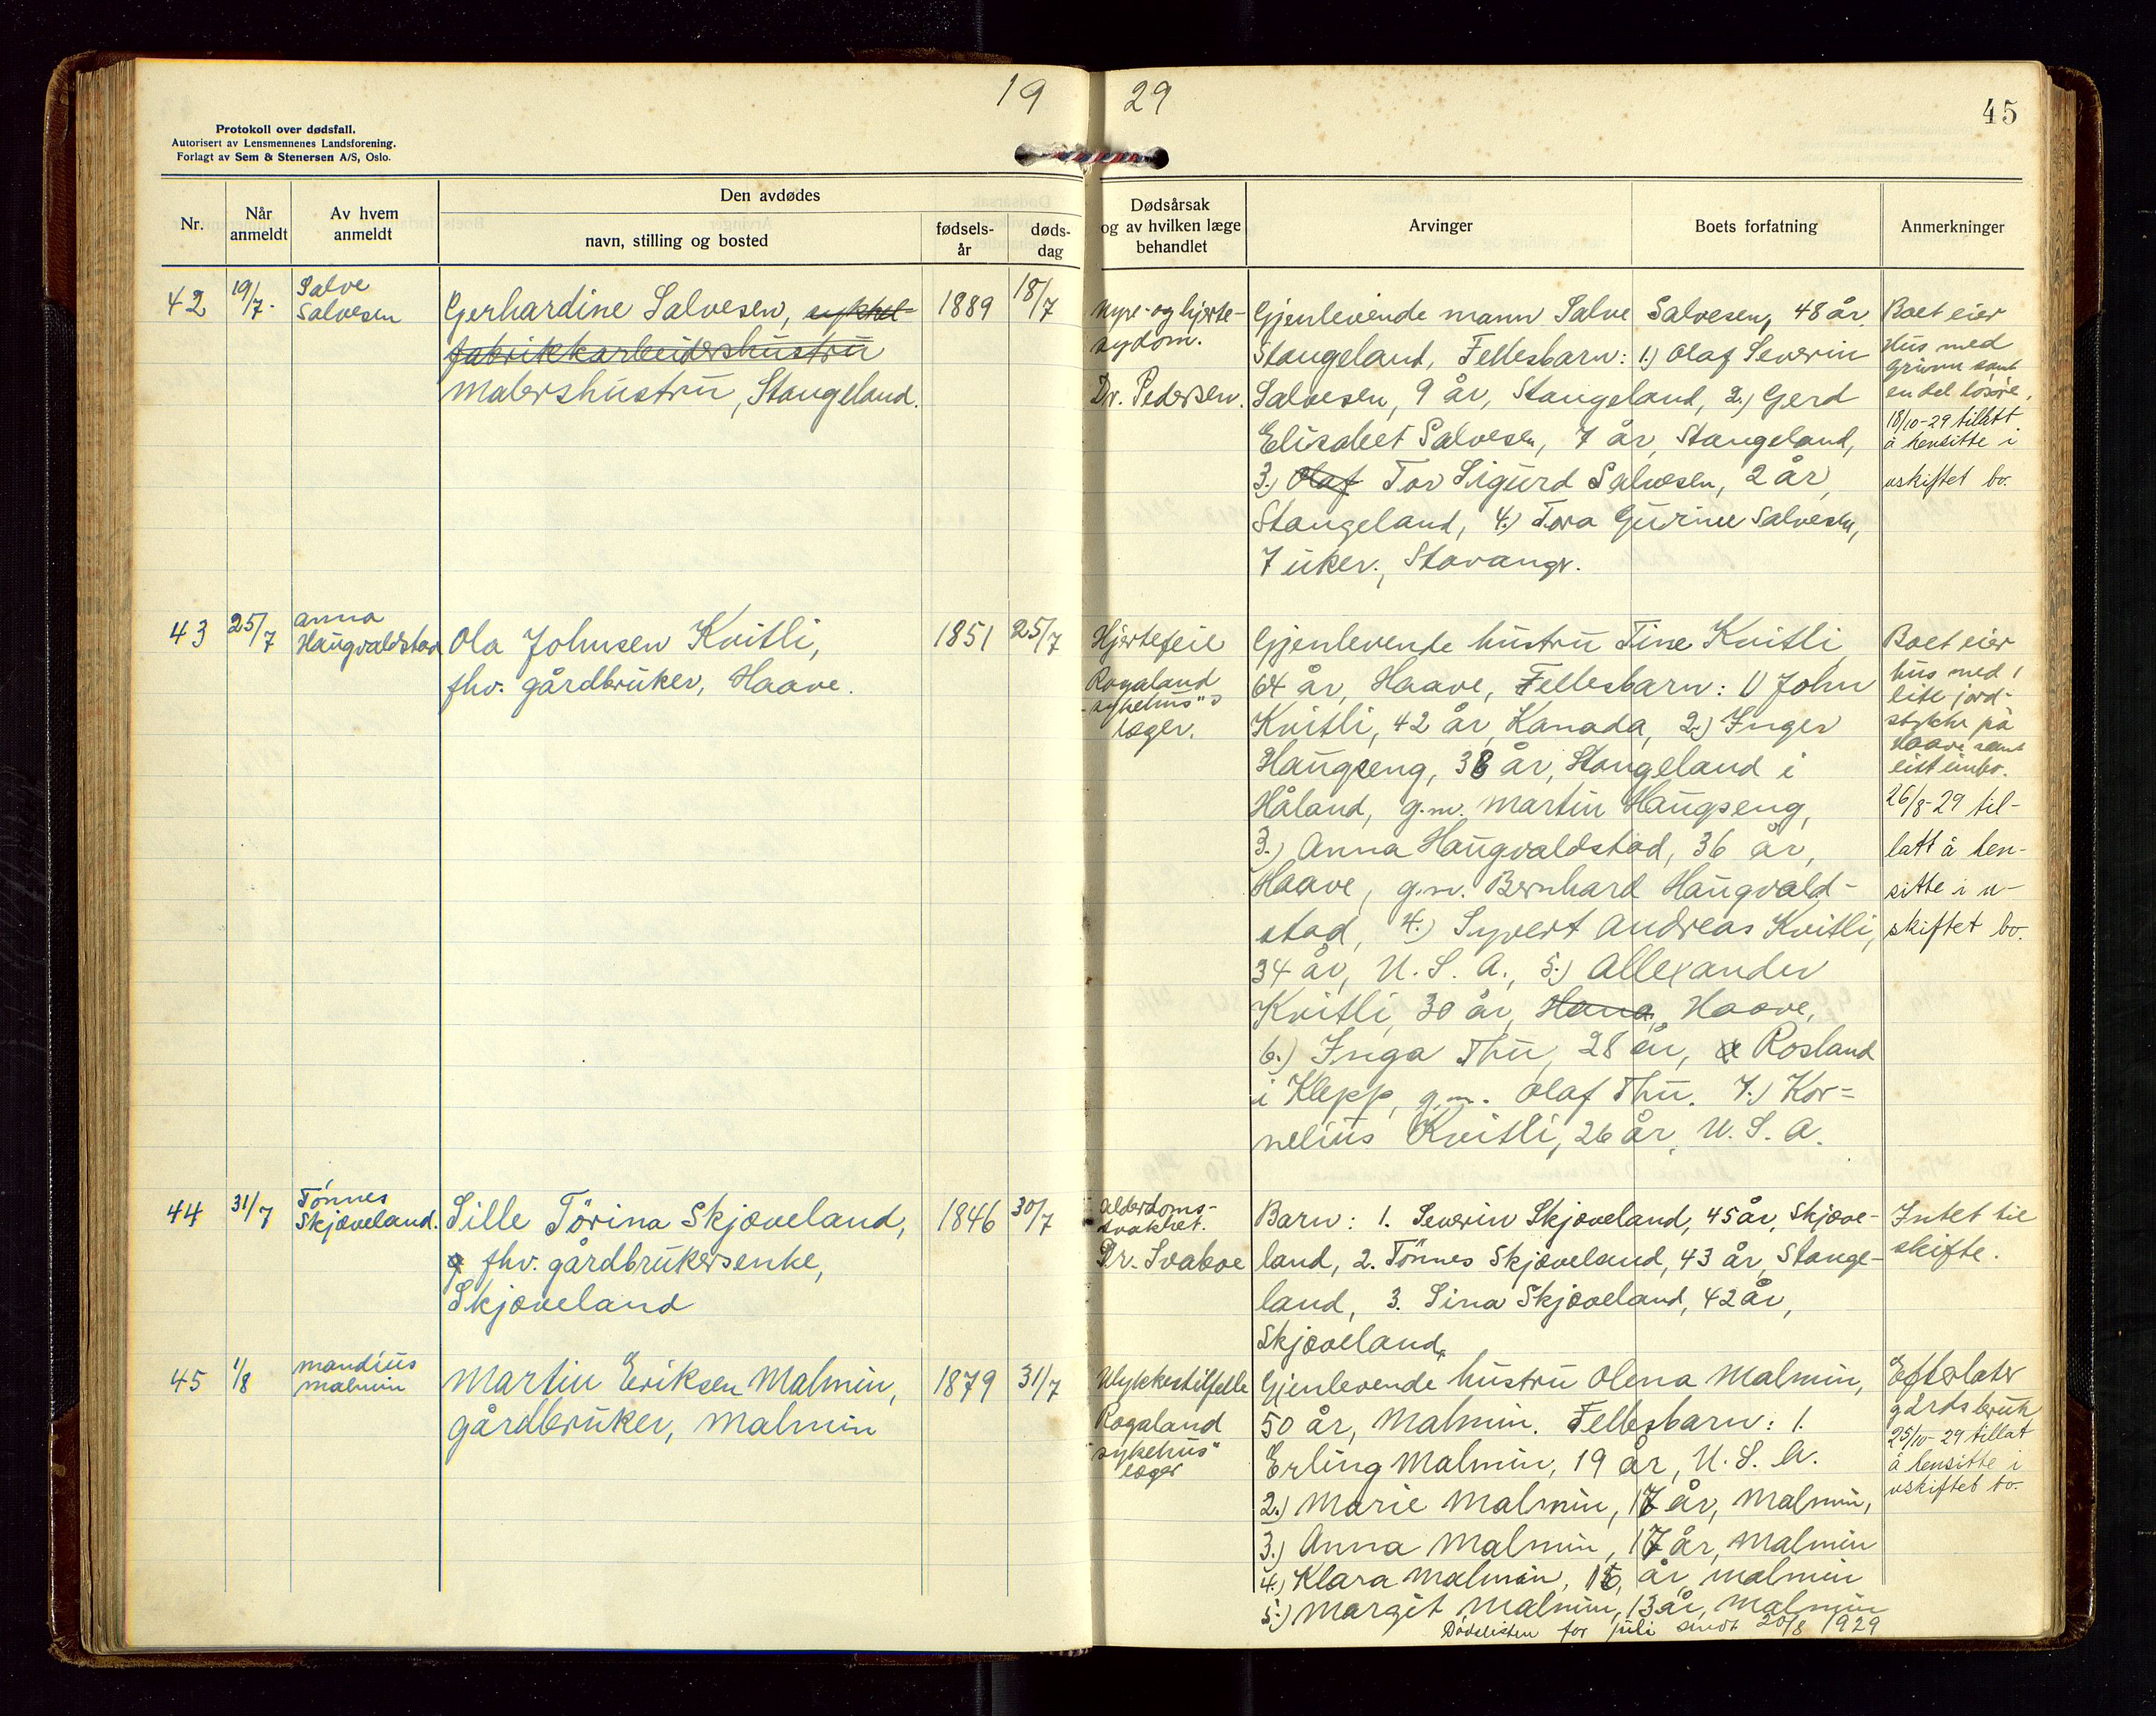 19 29
45
Protokoll over dødsfall.
Autorisert av Lensmennenes Landsforening.
Forlagt av Sem & Stenersen A/S, Oslo.
Nr.
Når anmeldt
Av hvem anmeldt
Den avdødes
navn, stilling og bosted
fødsels-år
døds-dag
Dødsårsak og av hvilken læge behandlet
Arvinger
Boets forfatning
Anmerkninger
42
19/7.
Salve
Salvesen
Gerhardine Salvesen,
fabrikkarbeidershustru
Malershustru, Stangeland.
1889
18/7
Nyre- og hjerte-
sydom.
Dr. Pedersen.
Gjenlevende mann Salve Salvesen, 48 år,
Stangeland, Fellesbarn: 1.) Olaf Severin
Salvesen, 9 år, Stangeland, 2.) Gerd
Elisabet Salvesen, 7 år, Stangeland,
3.) Olaf Tor Sigurd Salvesen, 2 år,
Stangeland, 4.) Tora Gurine Salvesen,
7 uker., Stavangr.
Boet eier
Hus med
grunn samt
en del løsøre,
18/10-29 tillatt
å hensitte i
uskiftet bo.
43
25/7
Anna
Haugvaldstad
Ola Johnsen Kvitli,
fhv. gårdbruker, Haave.
1851
25/7
Hjertefeil
Rogaland
sykehus"s
læger.
Gjenlevende hustru Tine Kvitli
64 år, Haave, Fellesbarn: 1) John
Kvitli, 42 år, Kanada, 2.) Inger
Haugseng, 38 år, Stangeland i
Håland, g.m. Martin Haugseng,
3.) Anna Haugvaldstad, 36 år,
Haave, g.m. Bernhard Haugvald-
stad, 4.) Syvert Andreas Kvitli,
34 år, U. S. A., 5.) Allexander
Kvitli, 30 år, Haave,
6.) Inga Thu, 28 år, Rosland
i Klepp, g.m. Olaf Thu. 7.) Kor-
nelius Kvitli, 26 år, U. S. A.
Boet eier
hus med 1
lite jord-
stykke på
Haave samt
litt innbo.
26/8-29 til-
latt å hen-
sitte i u-
skiftet bo.
44
31/7
Tønnes
Skjæveland.
Sille Tórina Skjæveland,
fhv. gårdbrukersenke,
Skjæveland
1846
30/7
Alderdoms-
svakhet.
Dr. Svaboe
Barn: 1. Severin Skjæveland, 45 år, Skjæve-
land, 2. Tønnes Skjæveland, 43 år, Stange-
land, 3. Sina Skjæveland, 42 år,
Skjæveland.
Intet til
skifte.
45
1/8
Mandius
Malmin
Martin Eriksen Malmin,
gårdbruker, Malmin
1879
31/7
Ulykkestilfelle
Rogaland
sykehus"
læger
Gjenlevende hustru Olena Malmin,
50 år, Malmin. Fellesbarn: 1.
Erling Malmin, 19 år, U. S. A.
2.) Marie Malmin, 17 år, Malmin,
3.) Anna Malmin, 17 år, Malmin
4.) Klara Malmin, 15, år, Malmin
5.) Margit Malmin, 13 år, Malmin
Efterlater
gårdsbruk
25/10-29 tillat
å hensitte i
uskiftet bo.
Dødslisten for juli sendt 20/8 1929